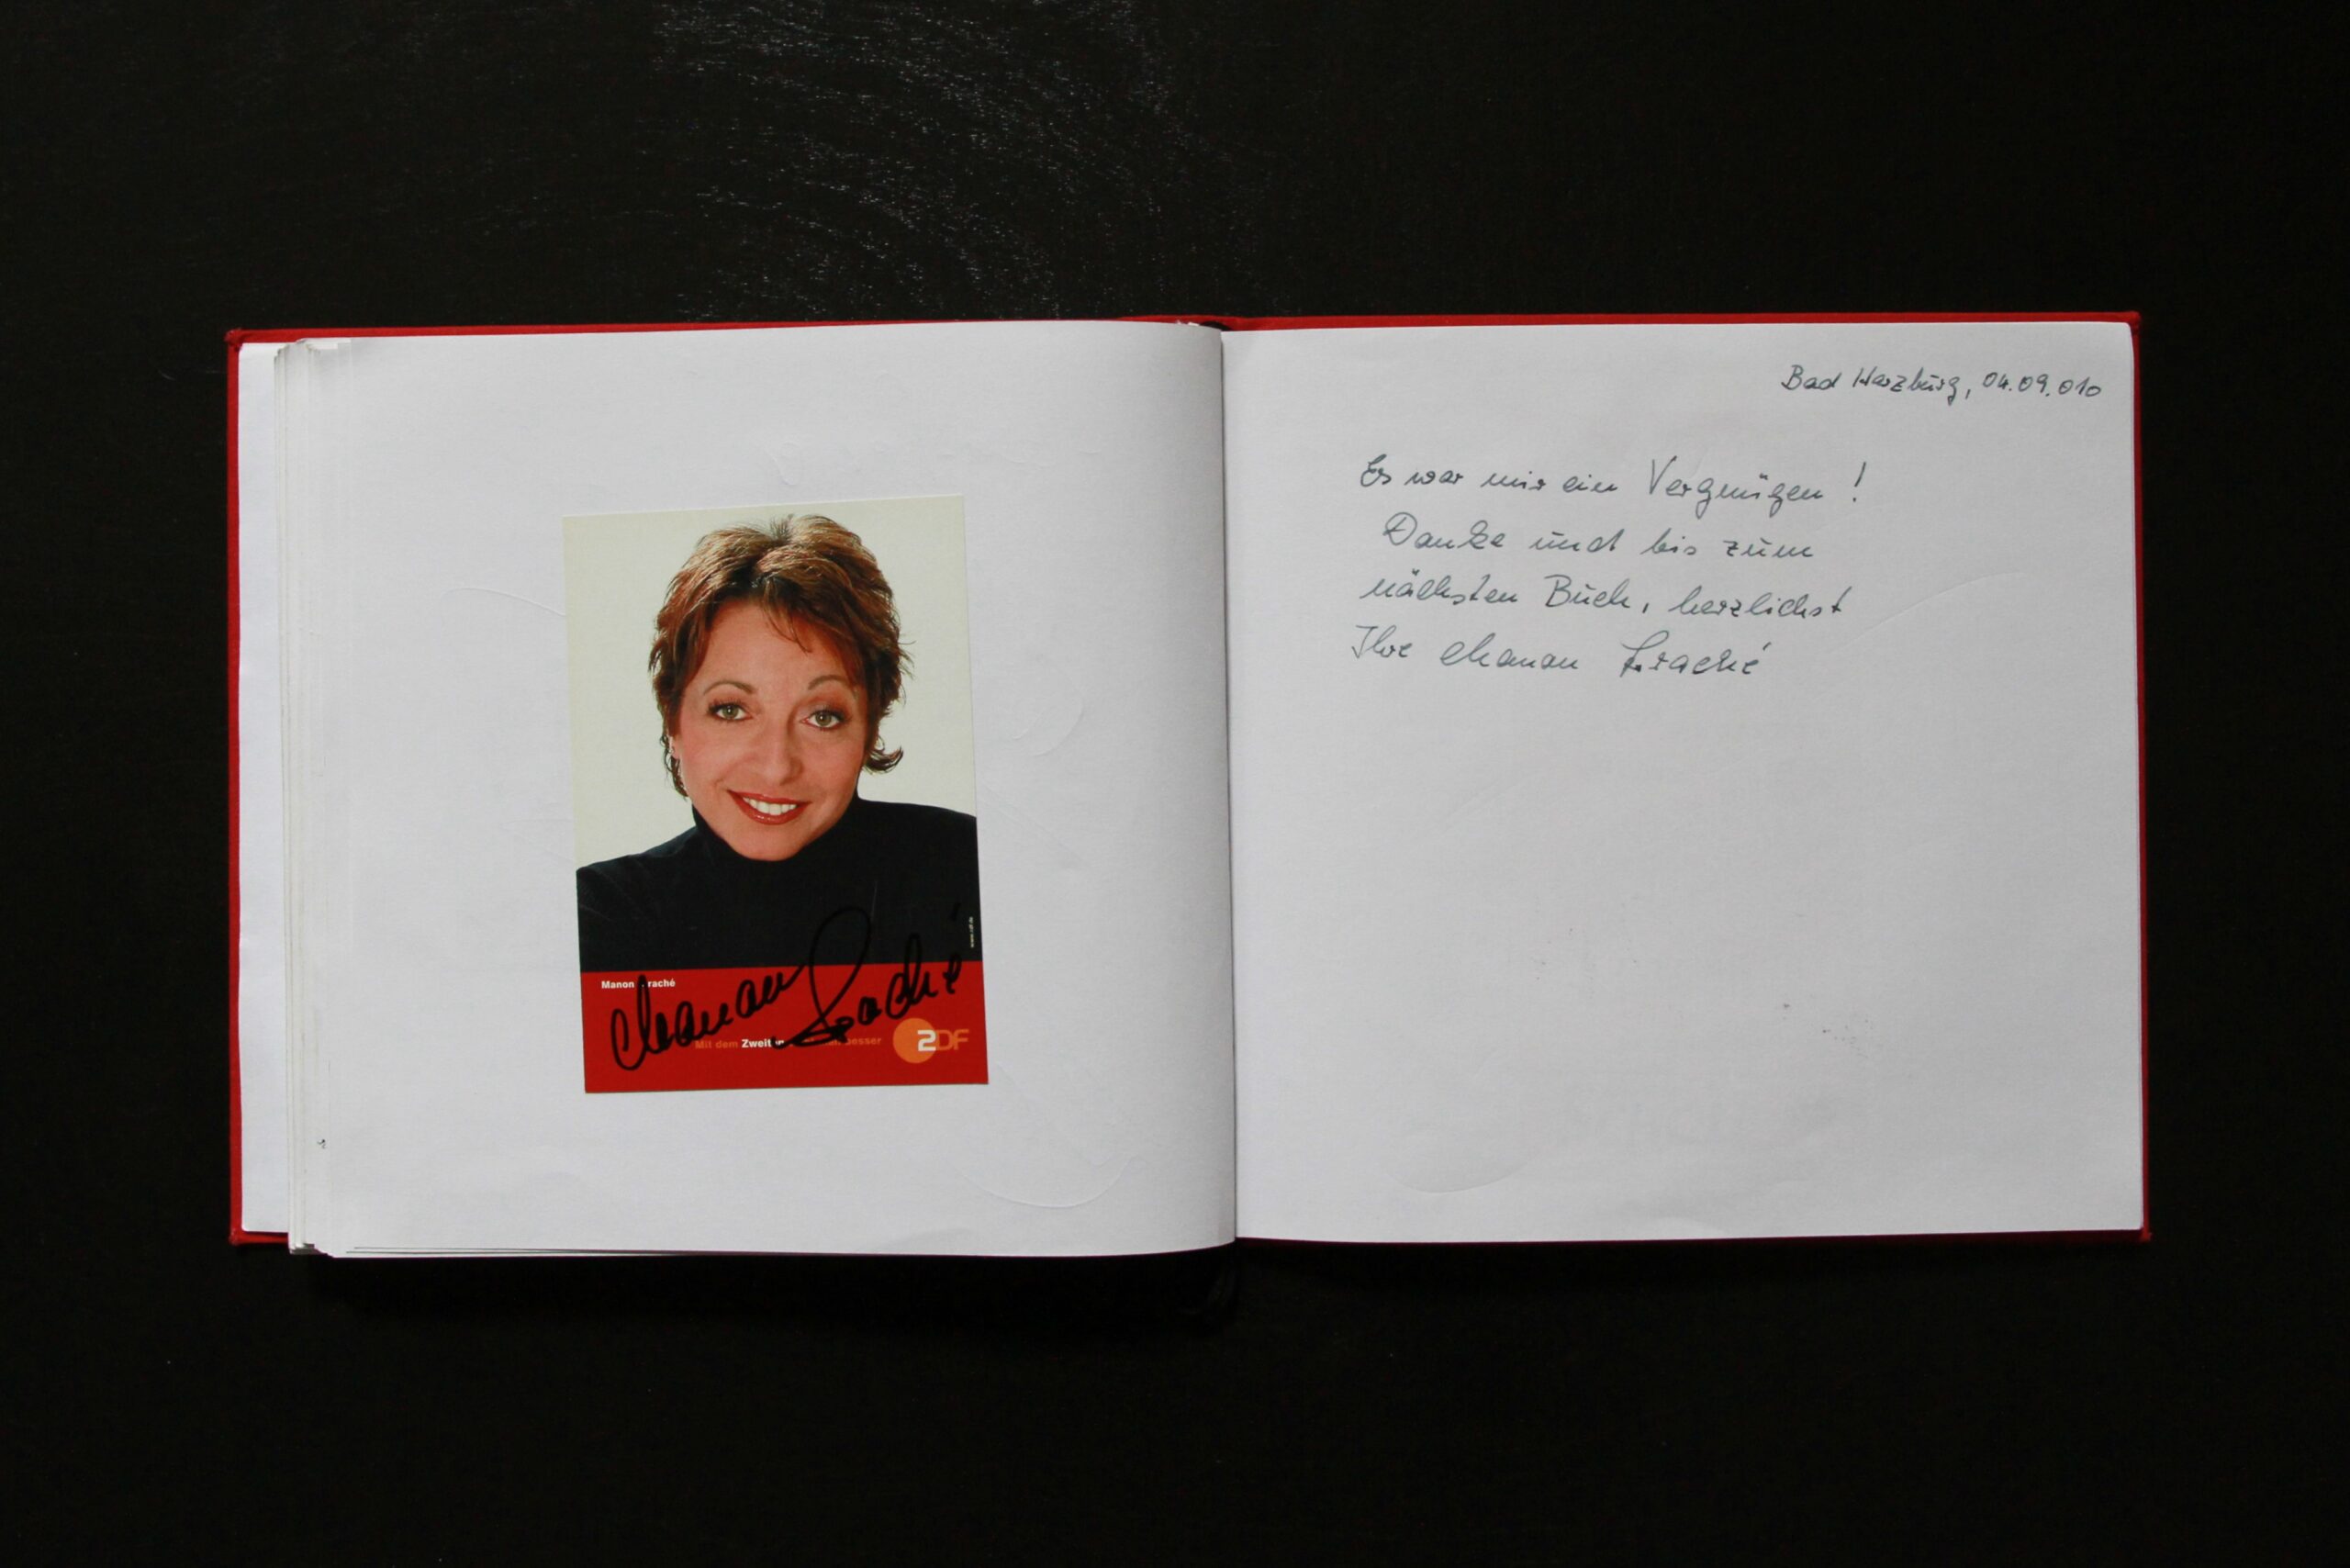 Manon Straché
Manon Straché
Mit dem Zweiten besser
ZDF
www.zdf.de
Bad Harzburg, 04.09.010
Es war mir ein Vergnügen !
Danke und bis zum
nächsten Buch, herzlichst
Ihre Manon Straché